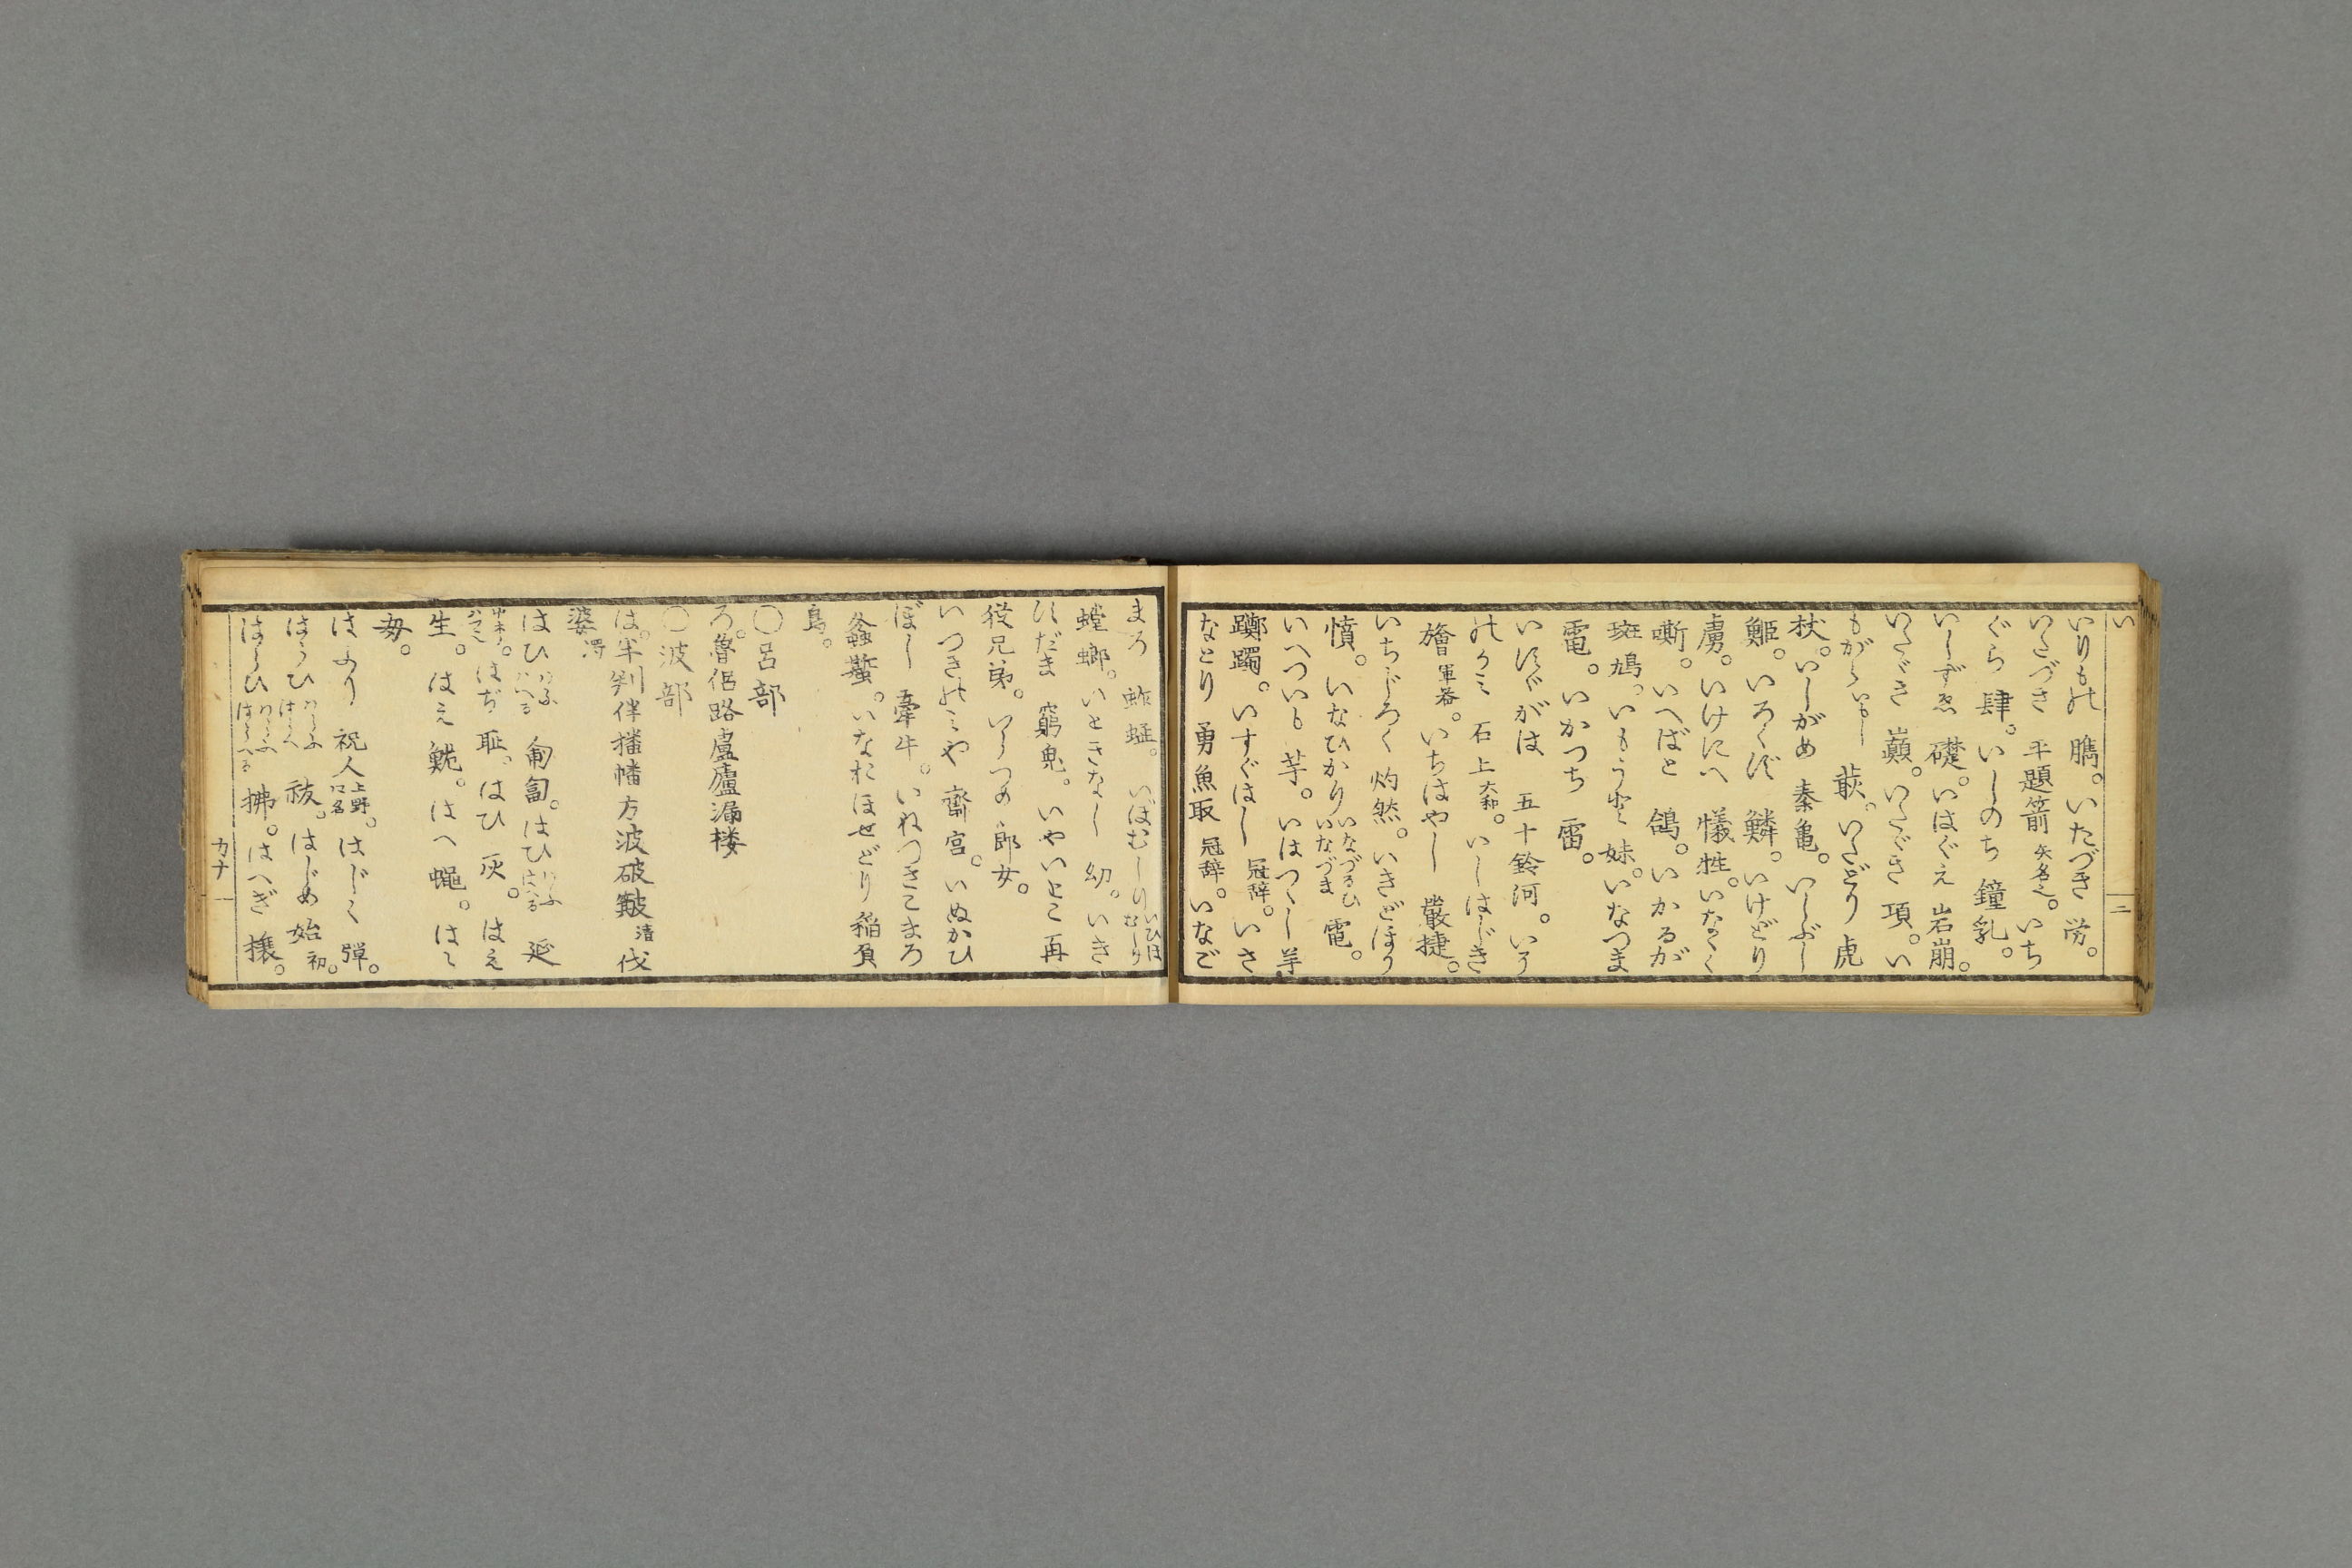 い
いりもの 臇。いたづき 労。
いたづき 平題箭 矢名也。いち
ぐら 肆。いしのち 鐘乳。
いしずゑ 礎。いはぐえ 岩崩。
いたゞき 巓。いたゞき 項。い
もがら いもし 萩。いたどり 虎
杖。いしがめ 秦亀。いしぶし
鮔。いろくず 鱗。いけどり
虜。いけにへ 犠牲。いなゝく
嘶。いへばと 鴿。いかるが
斑鳩。いもうと 妹。いなつま
電。いかつち 雷。
いすゞがは 五十鈴河。いそ
のかみ 石上 大和。いしはじき
旝 軍器。いちはやし 嚴捷。
いちじろく 灼然。いきどほり
憤。いなひかり いなづるひ いなづま 電。
いへついも 芋。いはつゝし 羊
躑躅。いすぐはし 冠辞。いさ
なとり 勇魚取 冠辞。いなご
まろ 蚱蜢。いぼむしり いひぼむしり
螳螂。いときなし 幼。いき
すだま 窮鬼。いやいとこ 再
従兄弟。いらつめ 郎女。
いつきのみや 齋宮。いぬかひ
ぼし 牽牛。いねつきこまろ
螽蟴。いなおほせどり 稲負
鳥。
〇呂部
ろ。魯侶路盧廬漏楼
〇波部
は。半判伴播幡方波破皺 清 伐
婆 濁
はひ 匍匐。はひ 延
はぢ 恥。はひ 灰。はえ
生。はえ 鮠。はへ 蠅。はゝ
母。
はふり 祝人 上野 口名。はじく 彈。
はらひ 祓。はじめ 始 初。
はらひ 拂。はへぎ 榱。
二
カナ 一